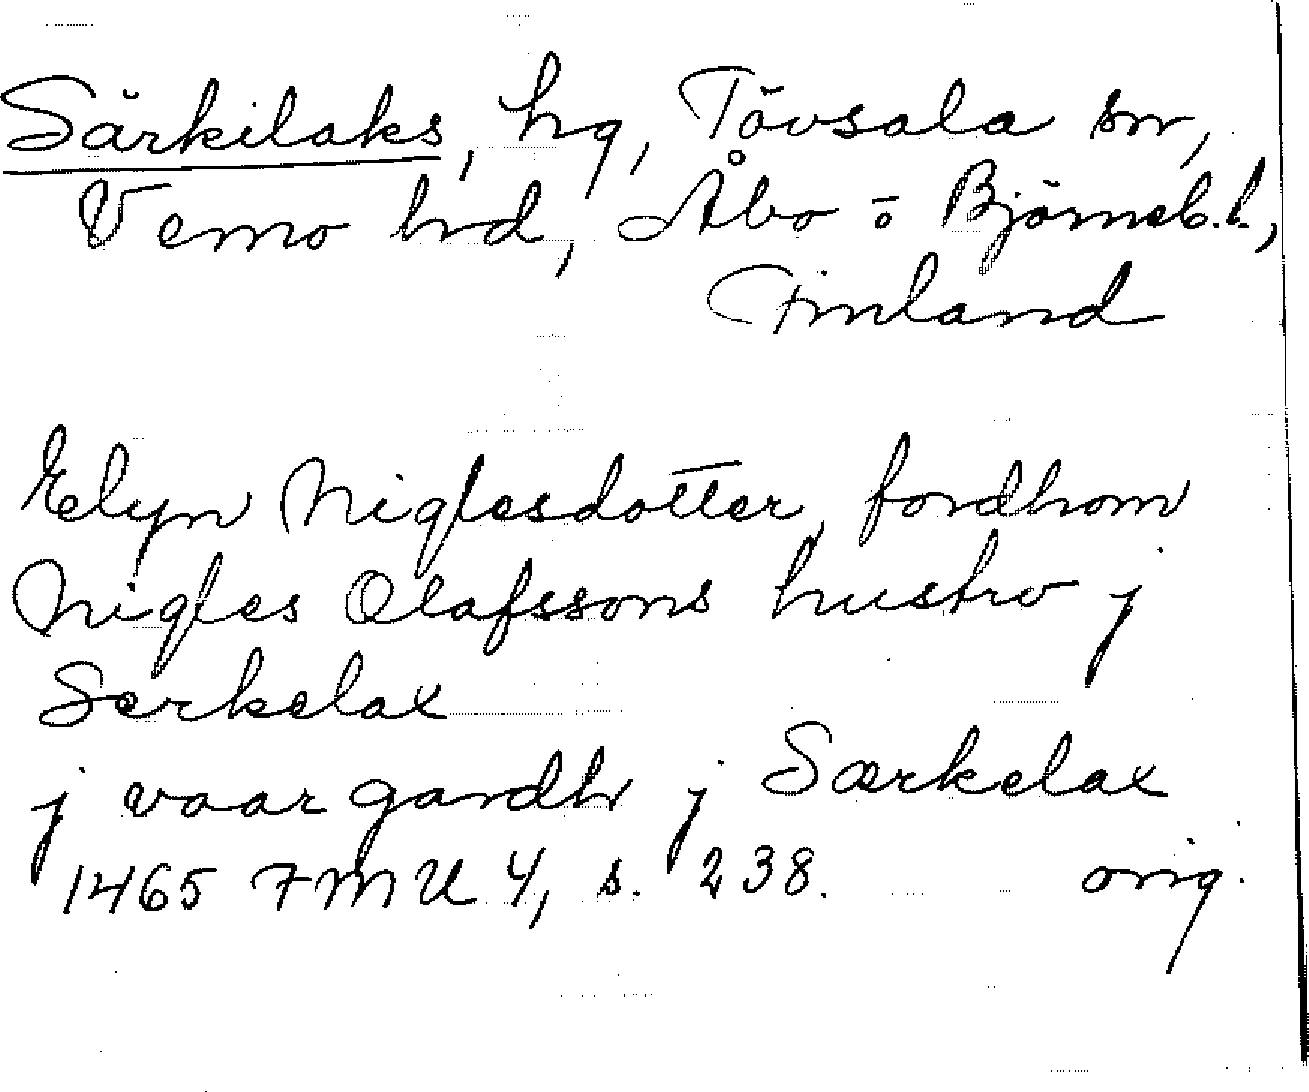 Särkilaks, hg, Tövsala sn,
Vemo hrd, Åbo o Björneb. l,
Finland
Elyn Niglesdotter, fordhom
Nigles Olafssons hustro j
Serkelax
j vaar gardh j Særkelax
1465 FMU 4, s. 238. orig.